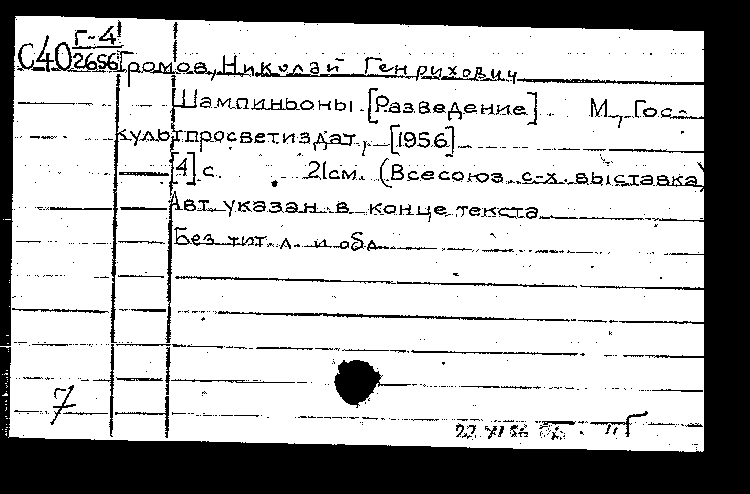 С40 Г-4
2656
Громов, Николай Генрихович
Шампиньоны [Разведение]. М., Гос-
культпросветиздат, [1956]
[4] с. 21см. (Всесоюз. с-х. выставка)
Авт. указан в конце текста
Без тит. л. и обл
7
22 XI 56